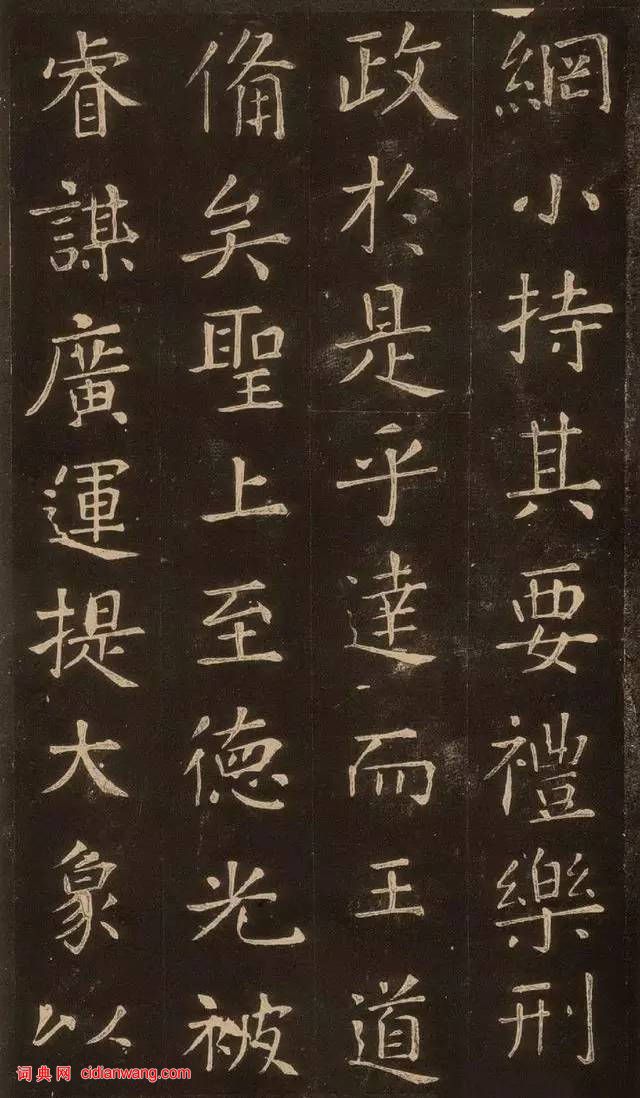 網小持其要禮樂刑
政於是乎達而王道
備矣聖上至德光被
睿謀廣運提大象以
词典网 cidianwang.com